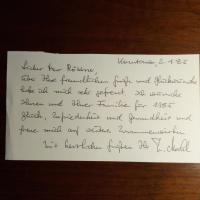 Konstanz, 2.1.85
Lieber Herr Rössner,
über Ihre freundlichen Grüße und Glückwünsche
habe ich mich sehr gefreut. Ich wünsche
Ihnen und Ihrer Familie für 1985
Glück, Zufriedenheit und Gesundheit und
freue mich auf weitere Zusammenarbeit.
Mit herzlichen Grüßen Ihr